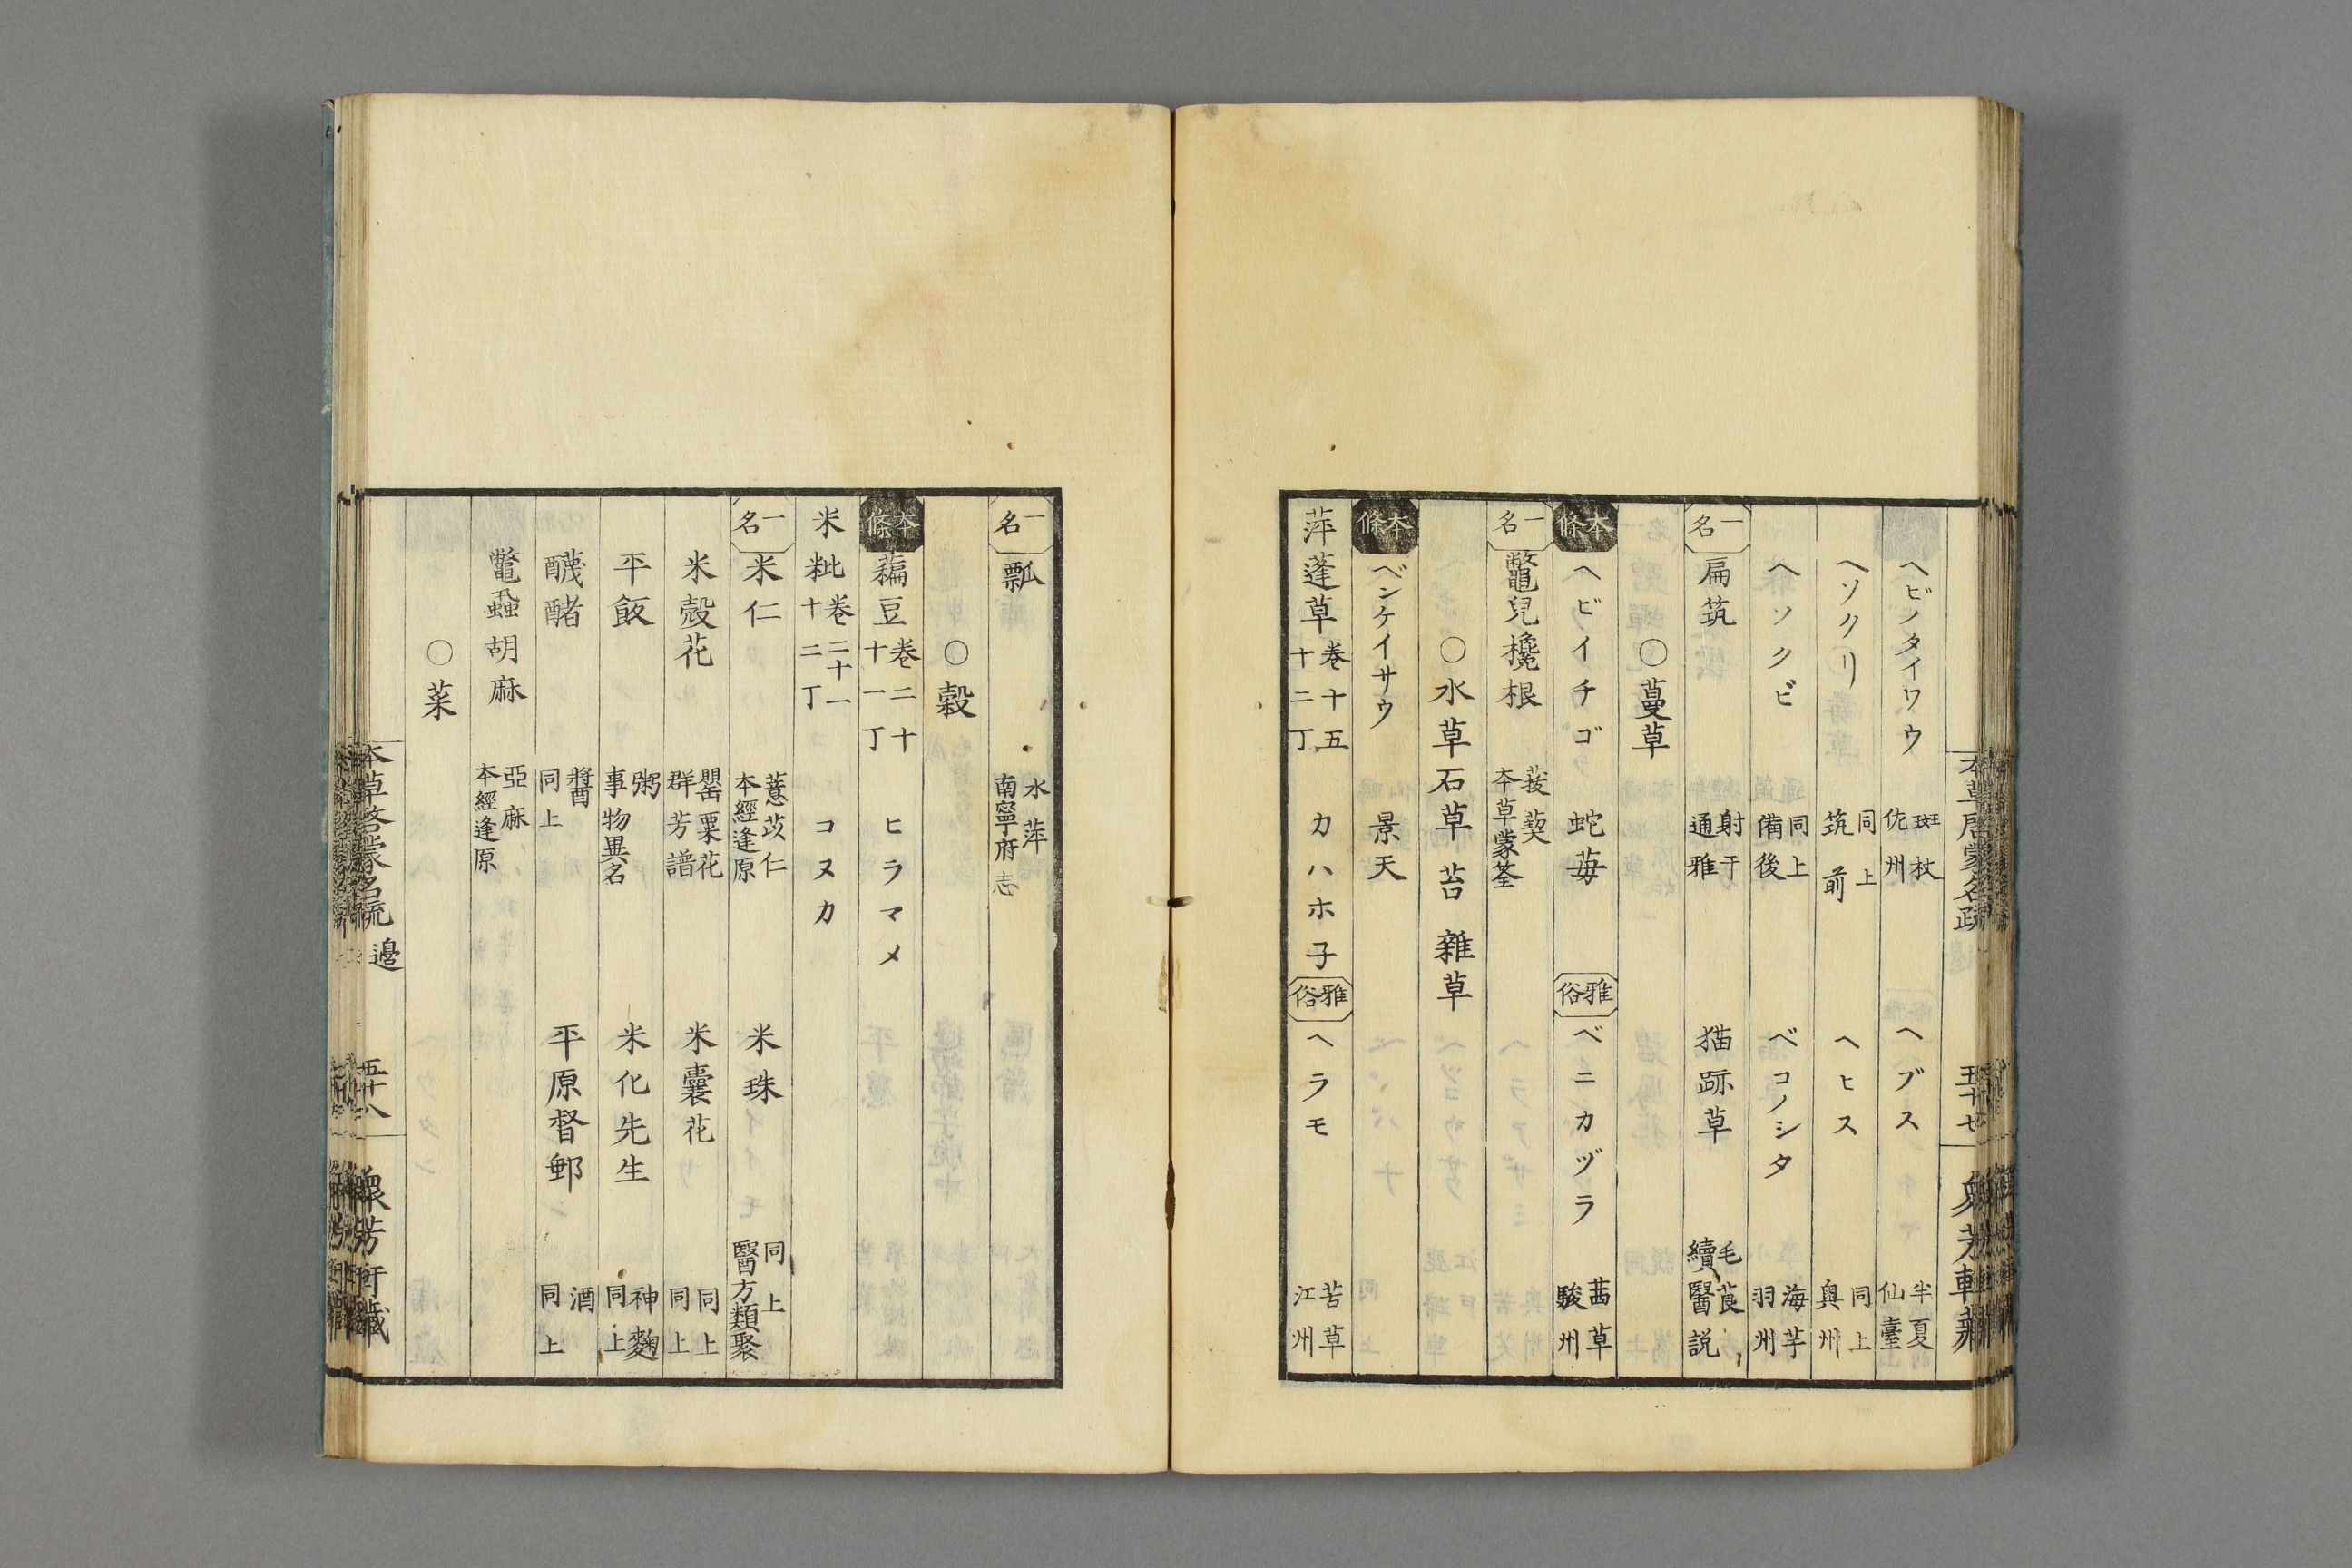 ヘビノタイワウ 斑杖 佐州 ヘブス 半夏 仙臺
ヘソクリ 同上 筑前 ヘヒス 同上 奥州
ヘソクビ 同上 備後 ベコノシタ 海芋 羽州
一名 扁筑 射干 通雅 猫跡草 毛莨 續醫説
○蔓草
本條 ヘビイチゴ 蛇苺 雅俗 ベニカヅラ 茜草 駿州
一名 鼈兒欃根 菝葜 本草蒙筌
○水草 石草 苔 雜草
本條 ベンケイサウ 景天
萍蓬草 卷十五 十二丁 カハホ子 雅俗 ヘラモ 苦草 江州
一名 瓢 水萍 南寧府志
○穀
本條 藊豆 卷二十 十一丁 ヒラマメ
米粃 卷二十一 十二丁 コヌカ
一名 米仁 薏苡仁 本經逢原 米珠 同上 醫方類聚
米殼花 罌粟花 群芳譜 米囊花 同上 同上
平飯 粥 事物異名 米化先生 神麴 同上
醆醏 醬 同上 平原督郵 酒 同上
鼈蝨胡麻 亞麻 本經逢原
○菜
本草啓蒙名疏 邊 五十八